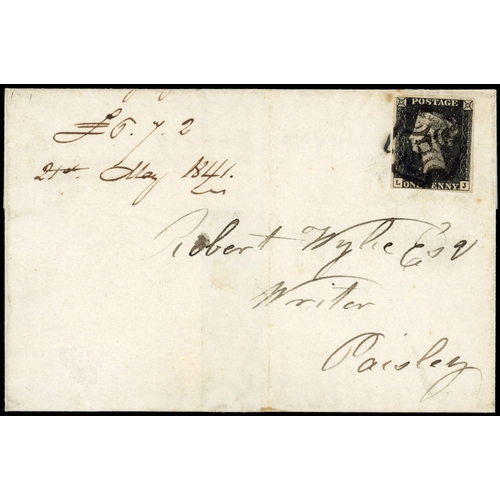 £6. 7. 2
21st. May 1841.
POSTAGE
ONE PENNY
L J
Robert Wylie Esqr
Writer
Paisley